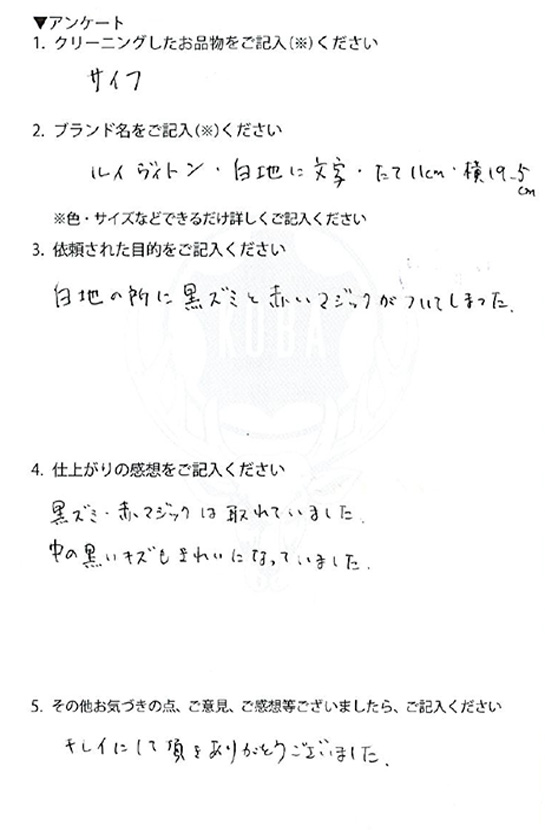 ▼アンケート
1. クリーニングしたお品物をご記入(※)ください
サイフ
2. ブランド名をご記入(※)ください
ルイ ヴィトン・白地に文字・たて11cm・横19.5cm
※色・サイズなどできるだけ詳しくご記入ください
3. 依頼された目的をご記入ください
白地の所に黒ズミと赤いマジックがついてしまった。
KOBA
4. 仕上がりの感想をご記入ください
黒ズミ・赤マジックは取れていました。
中の黒いキズもきれいになっていました。
5. その他お気づきの点、ご意見、ご感想等ございましたら、ご記入ください
キレイにして頂きありがとうございました。